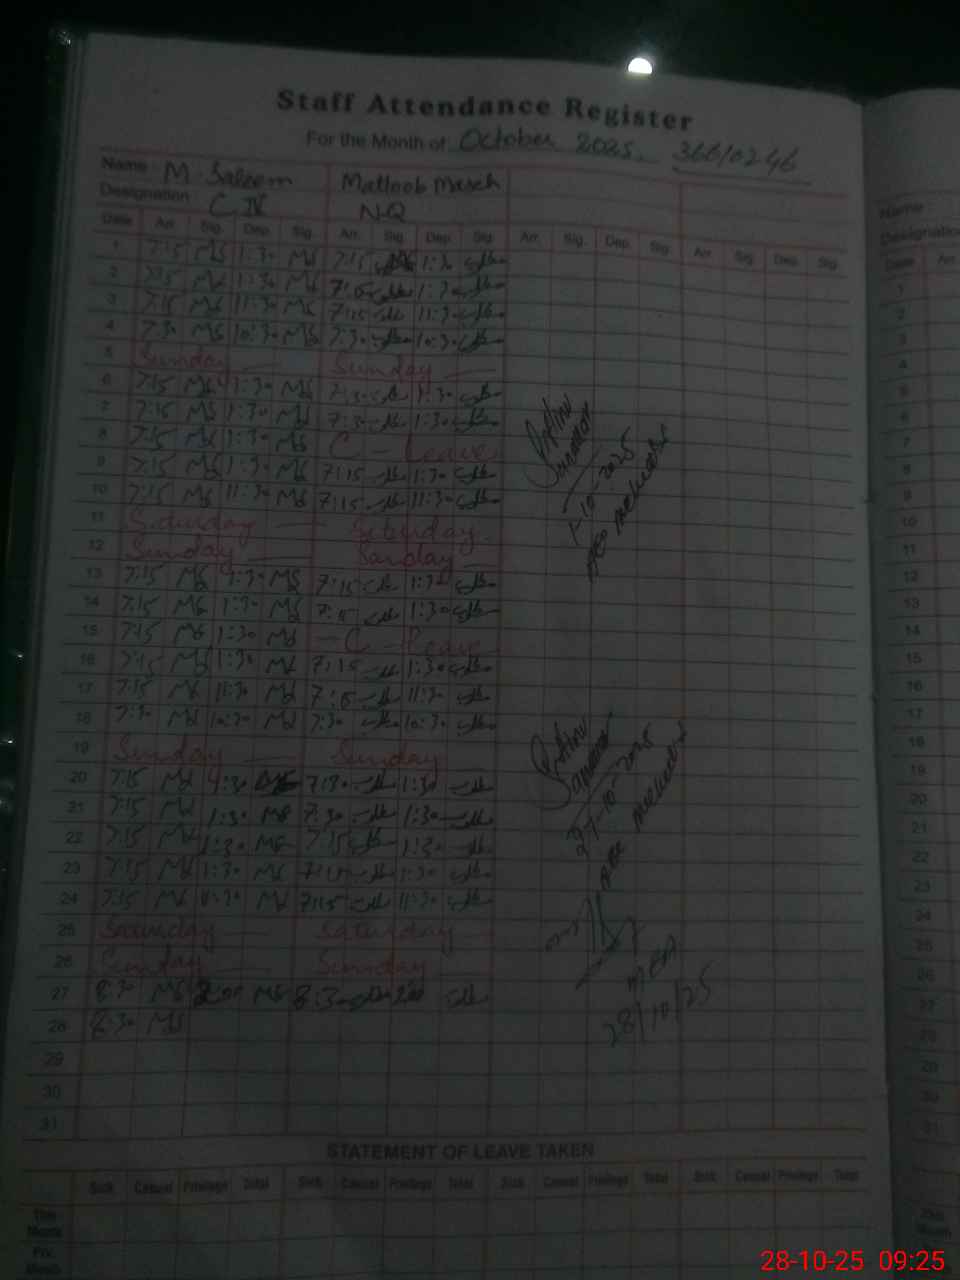 Staff Attendance Register
For the Month of October 2025. 36610246
Name M. Saleem Matloob Masih
Designation C IV N.Q
Date Arr. Sig. Dep. Sig. Arr. Sig. Dep. Sig. Arr. Sig. Dep. Sig. Arr. Sig. Dep. Sig.
1 7:15 MS 1:30 MS 7:15 1:30
2 7:15 MS 1:30 MS 7:15 1:30
3 7:15 MS 11:30 MS 7:15 11:30
4 7:30 MS 10:30 MS 7:30 10:30
5 Sunday Sunday
6 7:15 MS 1:30 MS 7:30 1:30
7 7:15 MS 1:30 MS 7:30 1:30
8 7:15 MS 1:30 MS C - Leave
9 7:15 MS 1:30 MS 7:15 1:30
10 7:15 MS 11:30 MS 7:15 11:30
11 Saturday Saturday
12 Sunday Sunday
13 7:15 MS 1:30 MS 7:15 1:30
14 7:15 MS 1:30 MS 7:15 1:30
15 7:15 MS 1:30 MS C - Leave
16 7:15 MS 1:30 MS 7:15 1:30
17 7:15 MS 11:30 MS 7:15 11:30
18 7:30 MS 10:30 MS 7:30 10:30
19 Sunday Sunday
20 7:15 MS 1:30 7:30 1:30
21 7:15 MS 1:30 MS 7:30 1:30
22 7:15 MS 1:30 MS 7:15 1:30
23 7:15 MS 1:30 MS 7:15 1:30
24 7:15 MS 11:30 MS 7:15 11:30
25 Saturday Saturday
26 Sunday Sunday
27 8:30 MS 2:00 MS 8:30 2:00
28 8:30 MS
29
30
31
1-10-2025
21-10-2025
MEA
28/10/25
STATEMENT OF LEAVE TAKEN
Sick Casual Privilege Total Sick Casual Privilege Total Sick Casual Privilege Total Sick Casual Privilege Total
This Month
Prv. Month
Name
Designation
Date Arr.
1
2
3
4
5
6
7
8
9
10
11
12
13
14
15
16
17
18
19
20
21
22
23
24
25
26
27
28
29
30
31
28-10-25 09:25